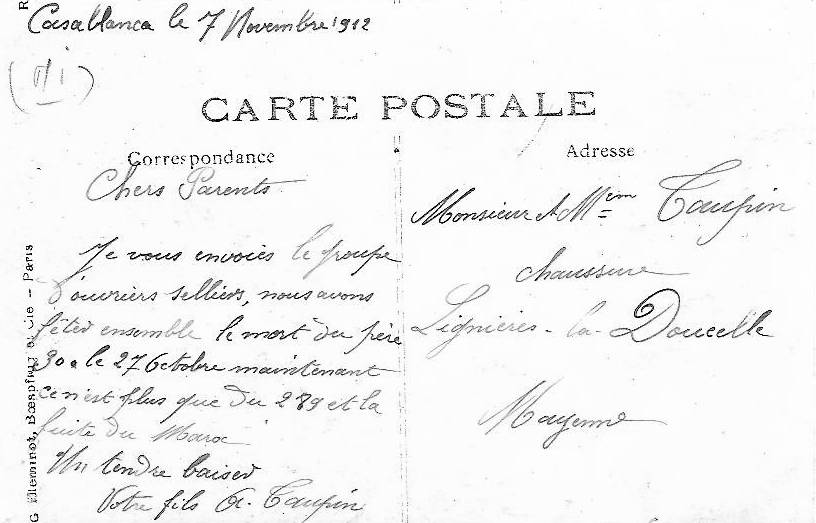 Casablanca le 7 Novembre 1912
CARTE POSTALE
Correspondance
Chers Parents
Je vous envoies le groupe
d'ouvriers selliers, nous avons
fêter ensemble le mort du père
30. le 27 Octobre maintenant
ce n'est plus que du 289 et la
fuite du Maroc
Un tendre baiser
Votre fils A. Taupin
Adresse
Monsieur et Mem Taupin
chaussure
Lignières-la-Doucelle
Mayenne
Cie - Paris